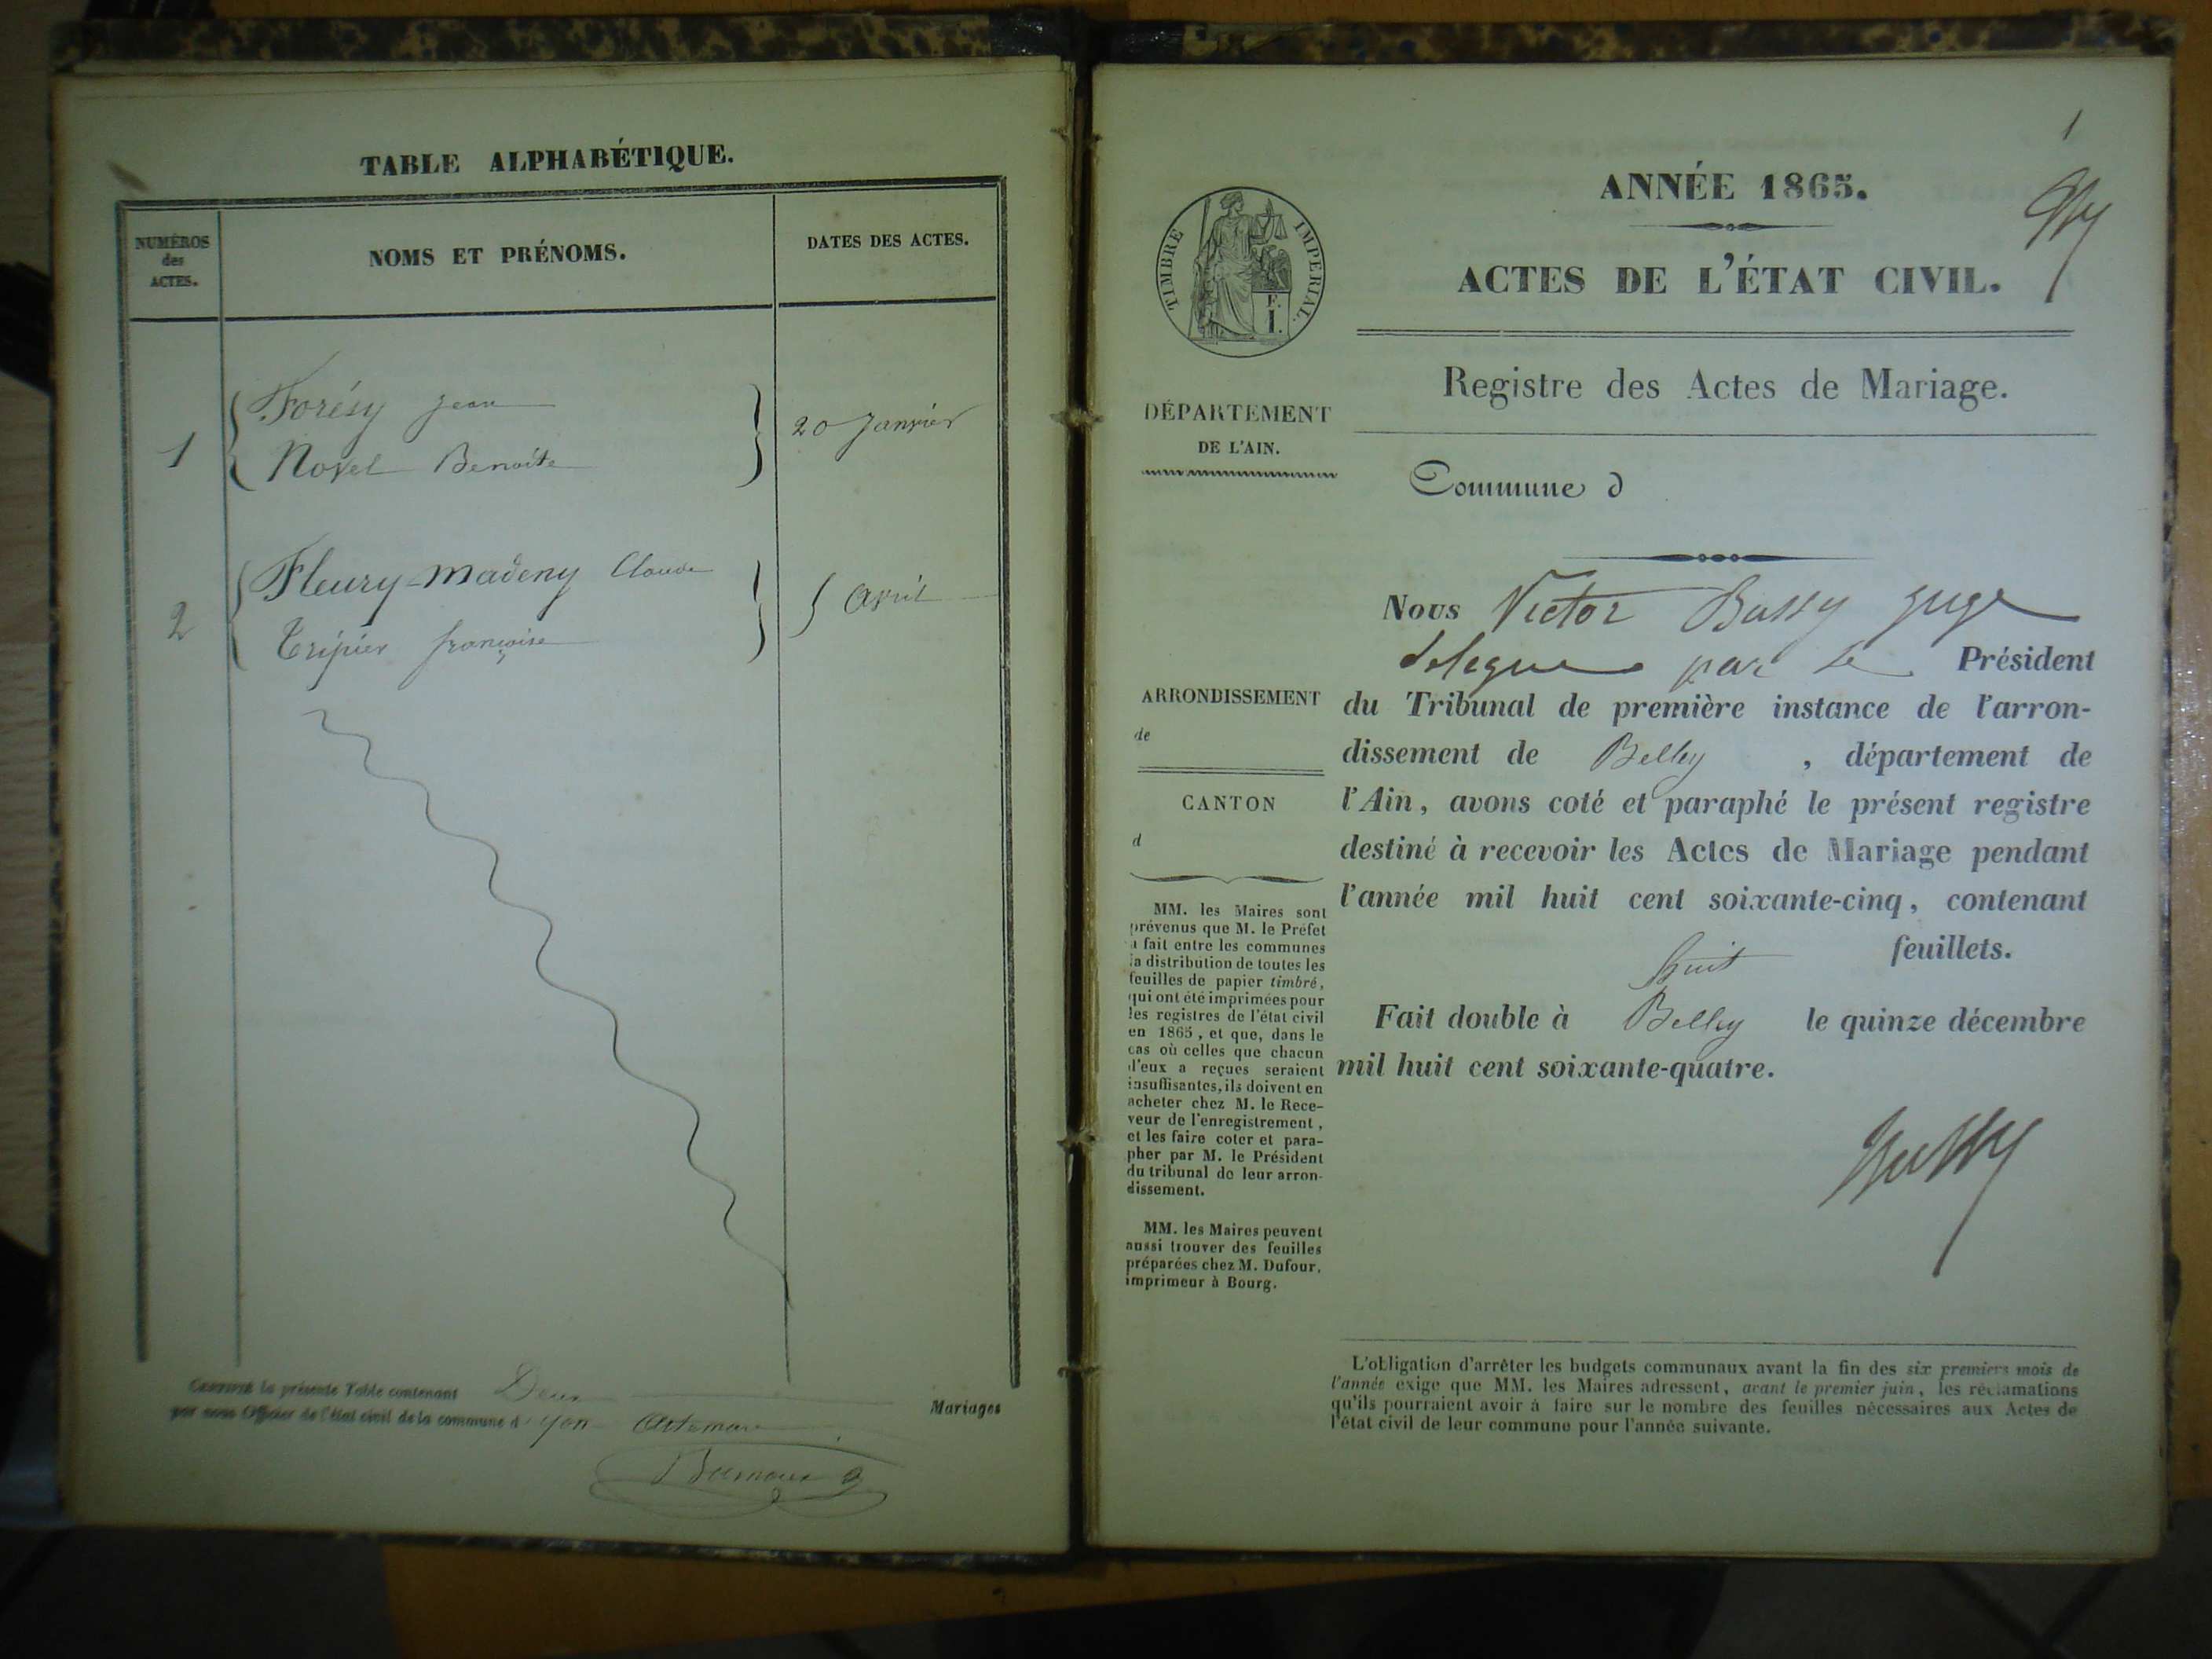 TABLE ALPHABÉTIQUE.
NUMÉROS
des
ACTES.
NOMS ET PRÉNOMS.
DATES DES ACTES.
1
Forésy Jean
Novel Benoite
20 Janvier
2
Fleury-Madeny Claude
Tripier françoise
5 Avril
Certifié la présente Table contenant Deux Mariages
par nous Officier de l'état civil de la commune d'yon Artemare
1
ANNÉE 1865.
ACTES DE L'ÉTAT CIVIL.
TIMBRE IMPERIAL.
E.
I.
Registre des Actes de Mariage.
DÉPARTEMENT
DE L'AIN.
Commune d
Nous Victor Bussy juge
délégué par le Président
du Tribunal de première instance de l'arron-
dissement de Belley , département de
l'Ain, avons coté et paraphé le présent registre
destiné à recevoir les Actes de Mariage pendant
l'année mil huit cent soixante-cinq, contenant
huit feuillets.
Fait double à Belley le quinze décembre
mil huit cent soixante-quatre.
Bussy
ARRONDISSEMENT
de
CANTON
d
MM. les Maires sont
prévenus que M. le Préfet
a fait entre les communes
la distribution de toutes les
feuilles de papier timbré,
qui ont été imprimées pour
les registres de l'état civil
en 1865, et que, dans le
cas où celles que chacun
d'eux a reçues seraient
insuffisantes, ils doivent en
acheter chez M. le Rece-
veur de l'enregistrement,
et les faire coter et para-
pher par M. le Président
du tribunal de leur arron-
dissement.
MM. les Maires peuvent
aussi trouver des feuilles
préparées chez M. Dufour,
imprimeur à Bourg.
L'obligation d'arrêter les budgets communaux avant la fin des six premiers mois de
l'année exige que MM. les Maires adressent, avant le premier juin, les réclamations
qu'ils pourraient avoir à faire sur le nombre des feuilles nécessaires aux Actes de
l'état civil de leur commune pour l'année suivante.